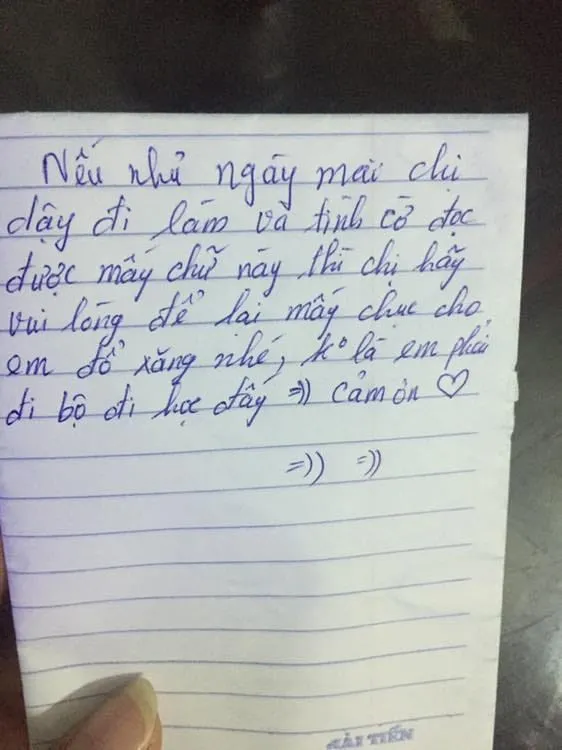 Nếu như ngày mai chị
dậy đi làm và tình cờ đọc
được mấy chữ này thì chị hãy
vui lòng để lại mấy chục cho
em đổ xăng nhé, ko là em phải
đi bộ đi học đấy =)) cảm ơn ♡
=)) =))
HẢI TIẾN